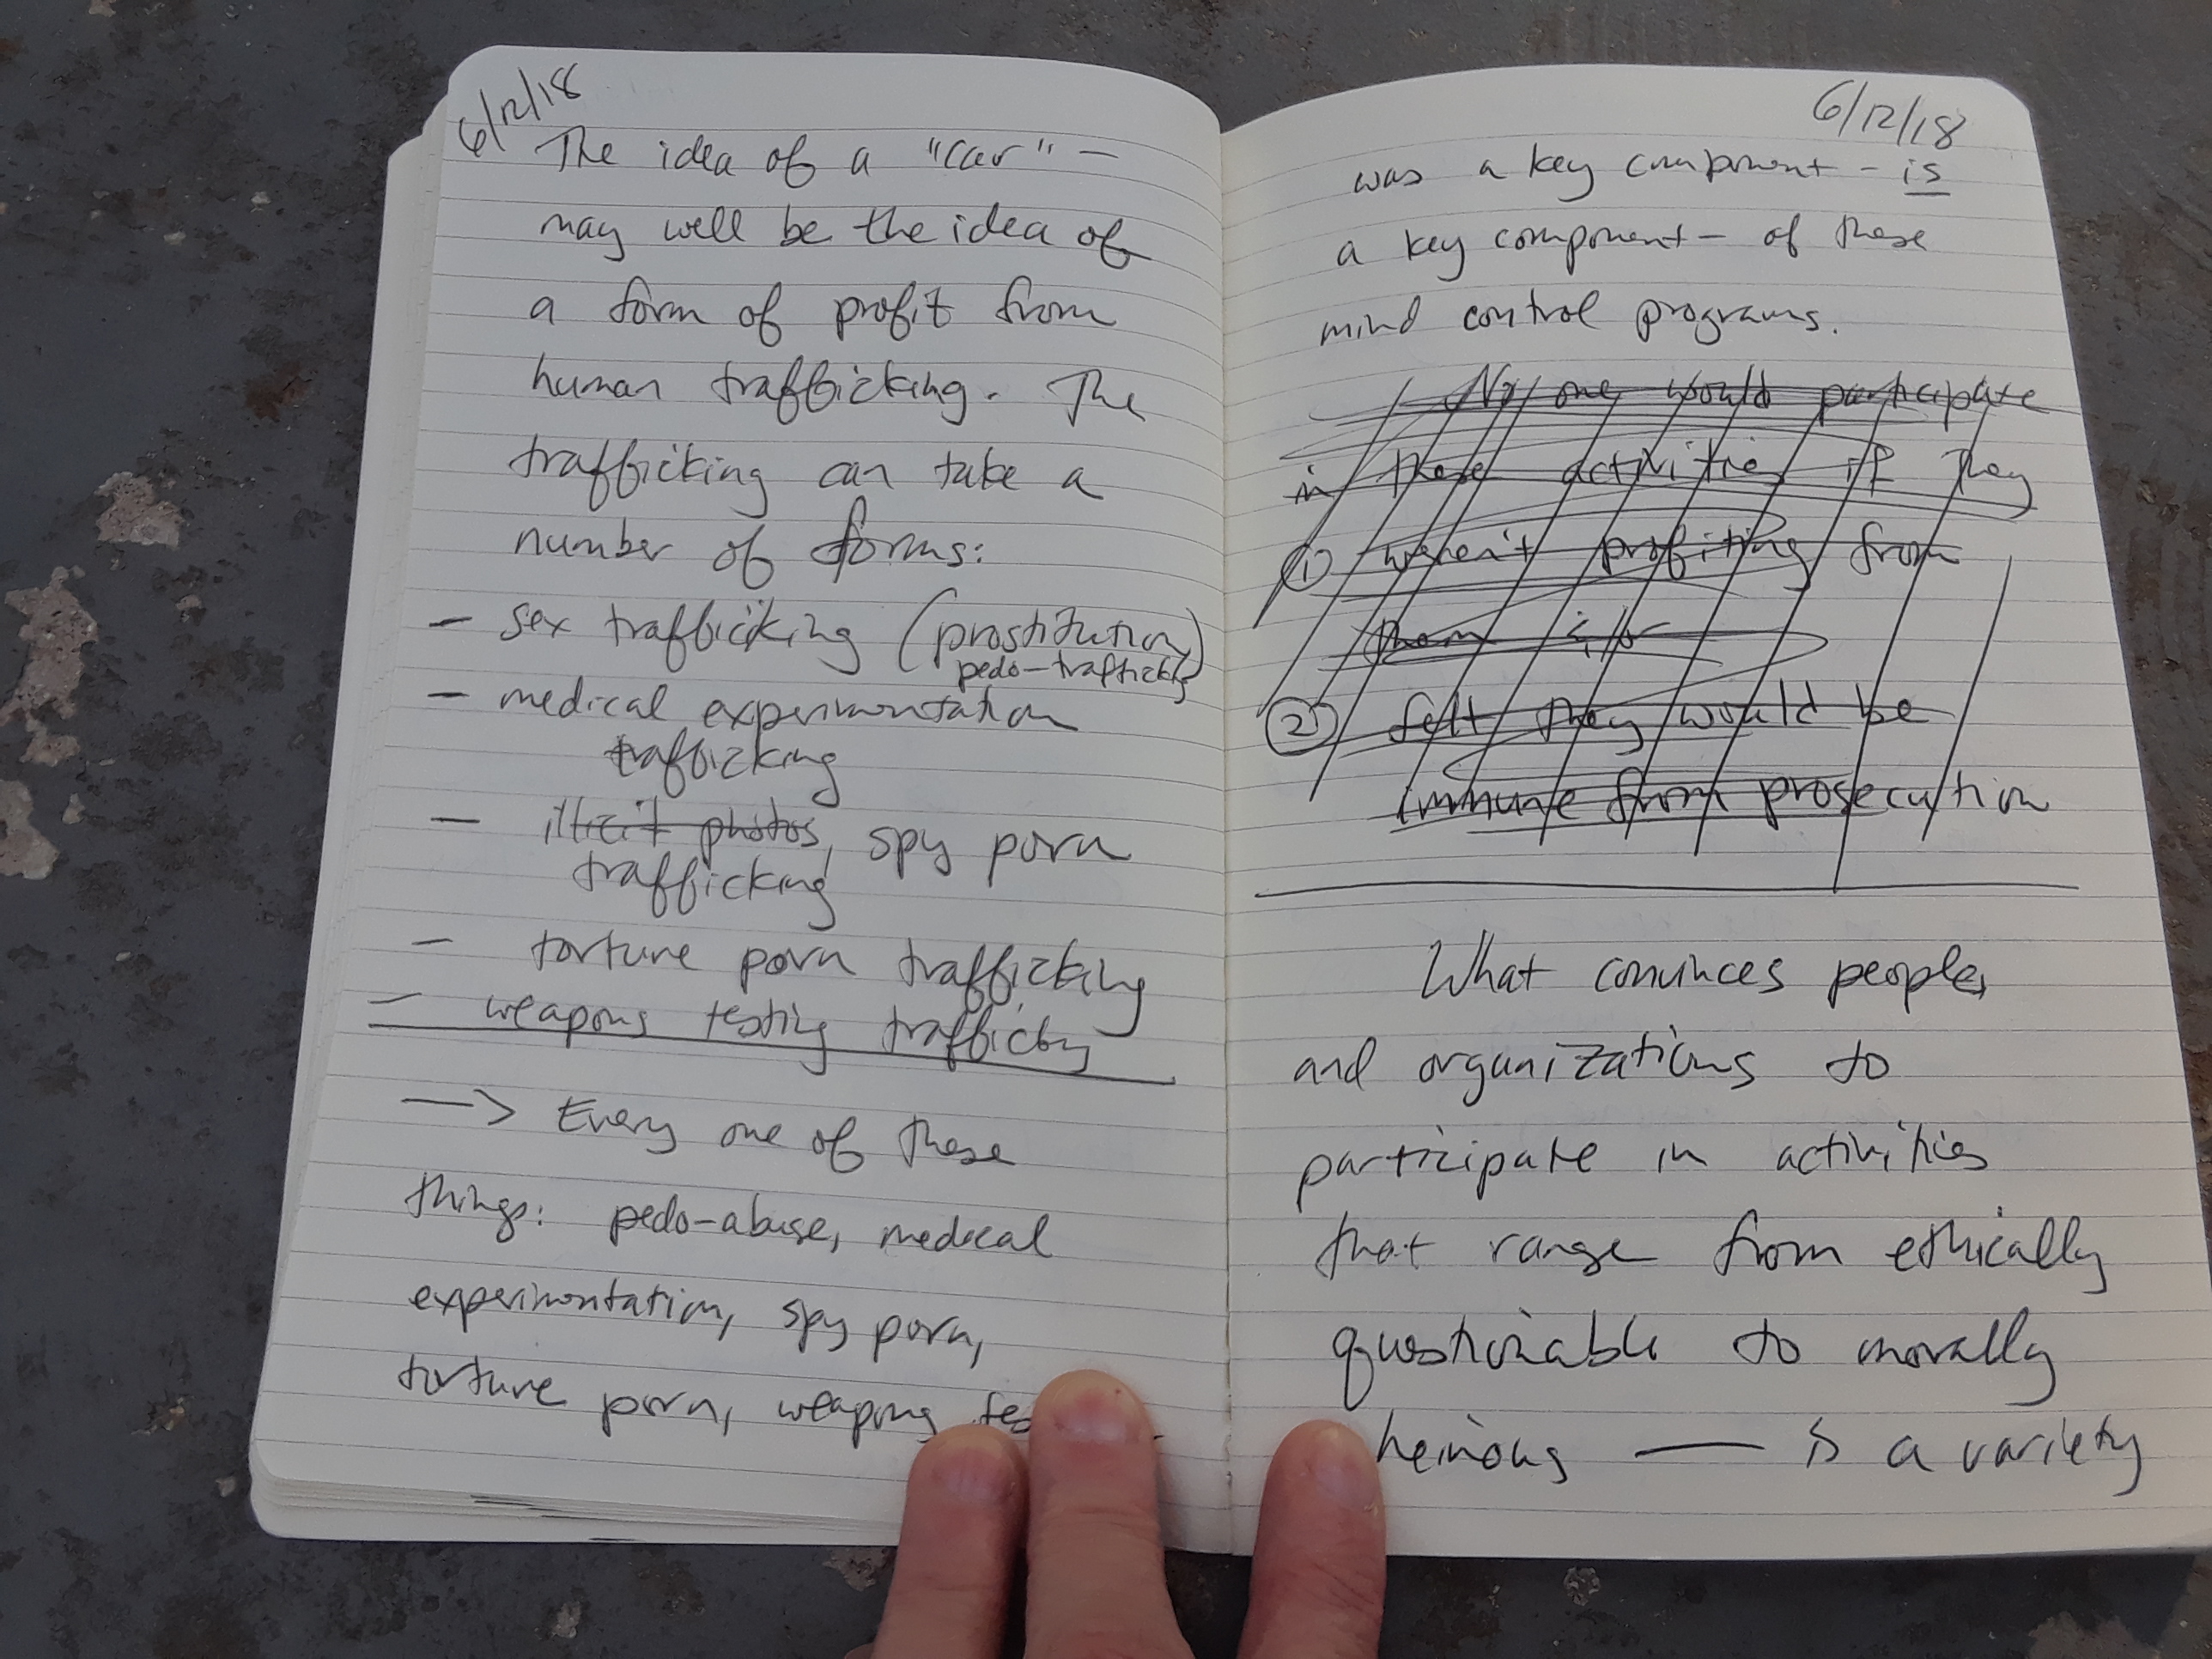 6/12/18
The idea of a "car" —
may well be the idea of
a form of profit from
human trafficking. The
trafficking can take a
number of forms:
— sex trafficking (prostitution)
pedo-trafficking
— medical experimentation
trafficking
— illicit photos, spy porn
trafficking
— torture porn trafficking
— weapons testing trafficking
—> Every one of these
things: pedo-abuse, medical
experimentation, spy porn,
torture porn, weapons
6/12/18
was a key component - is
a key component - of these
mind control programs.
No one would participate
in these activities if they
① weren't profiting from
them
② felt they would be
immune from prosecution
What convinces people,
and organizations to
participate in activities
that range from ethically
questionable to morally
heinous — is a variety